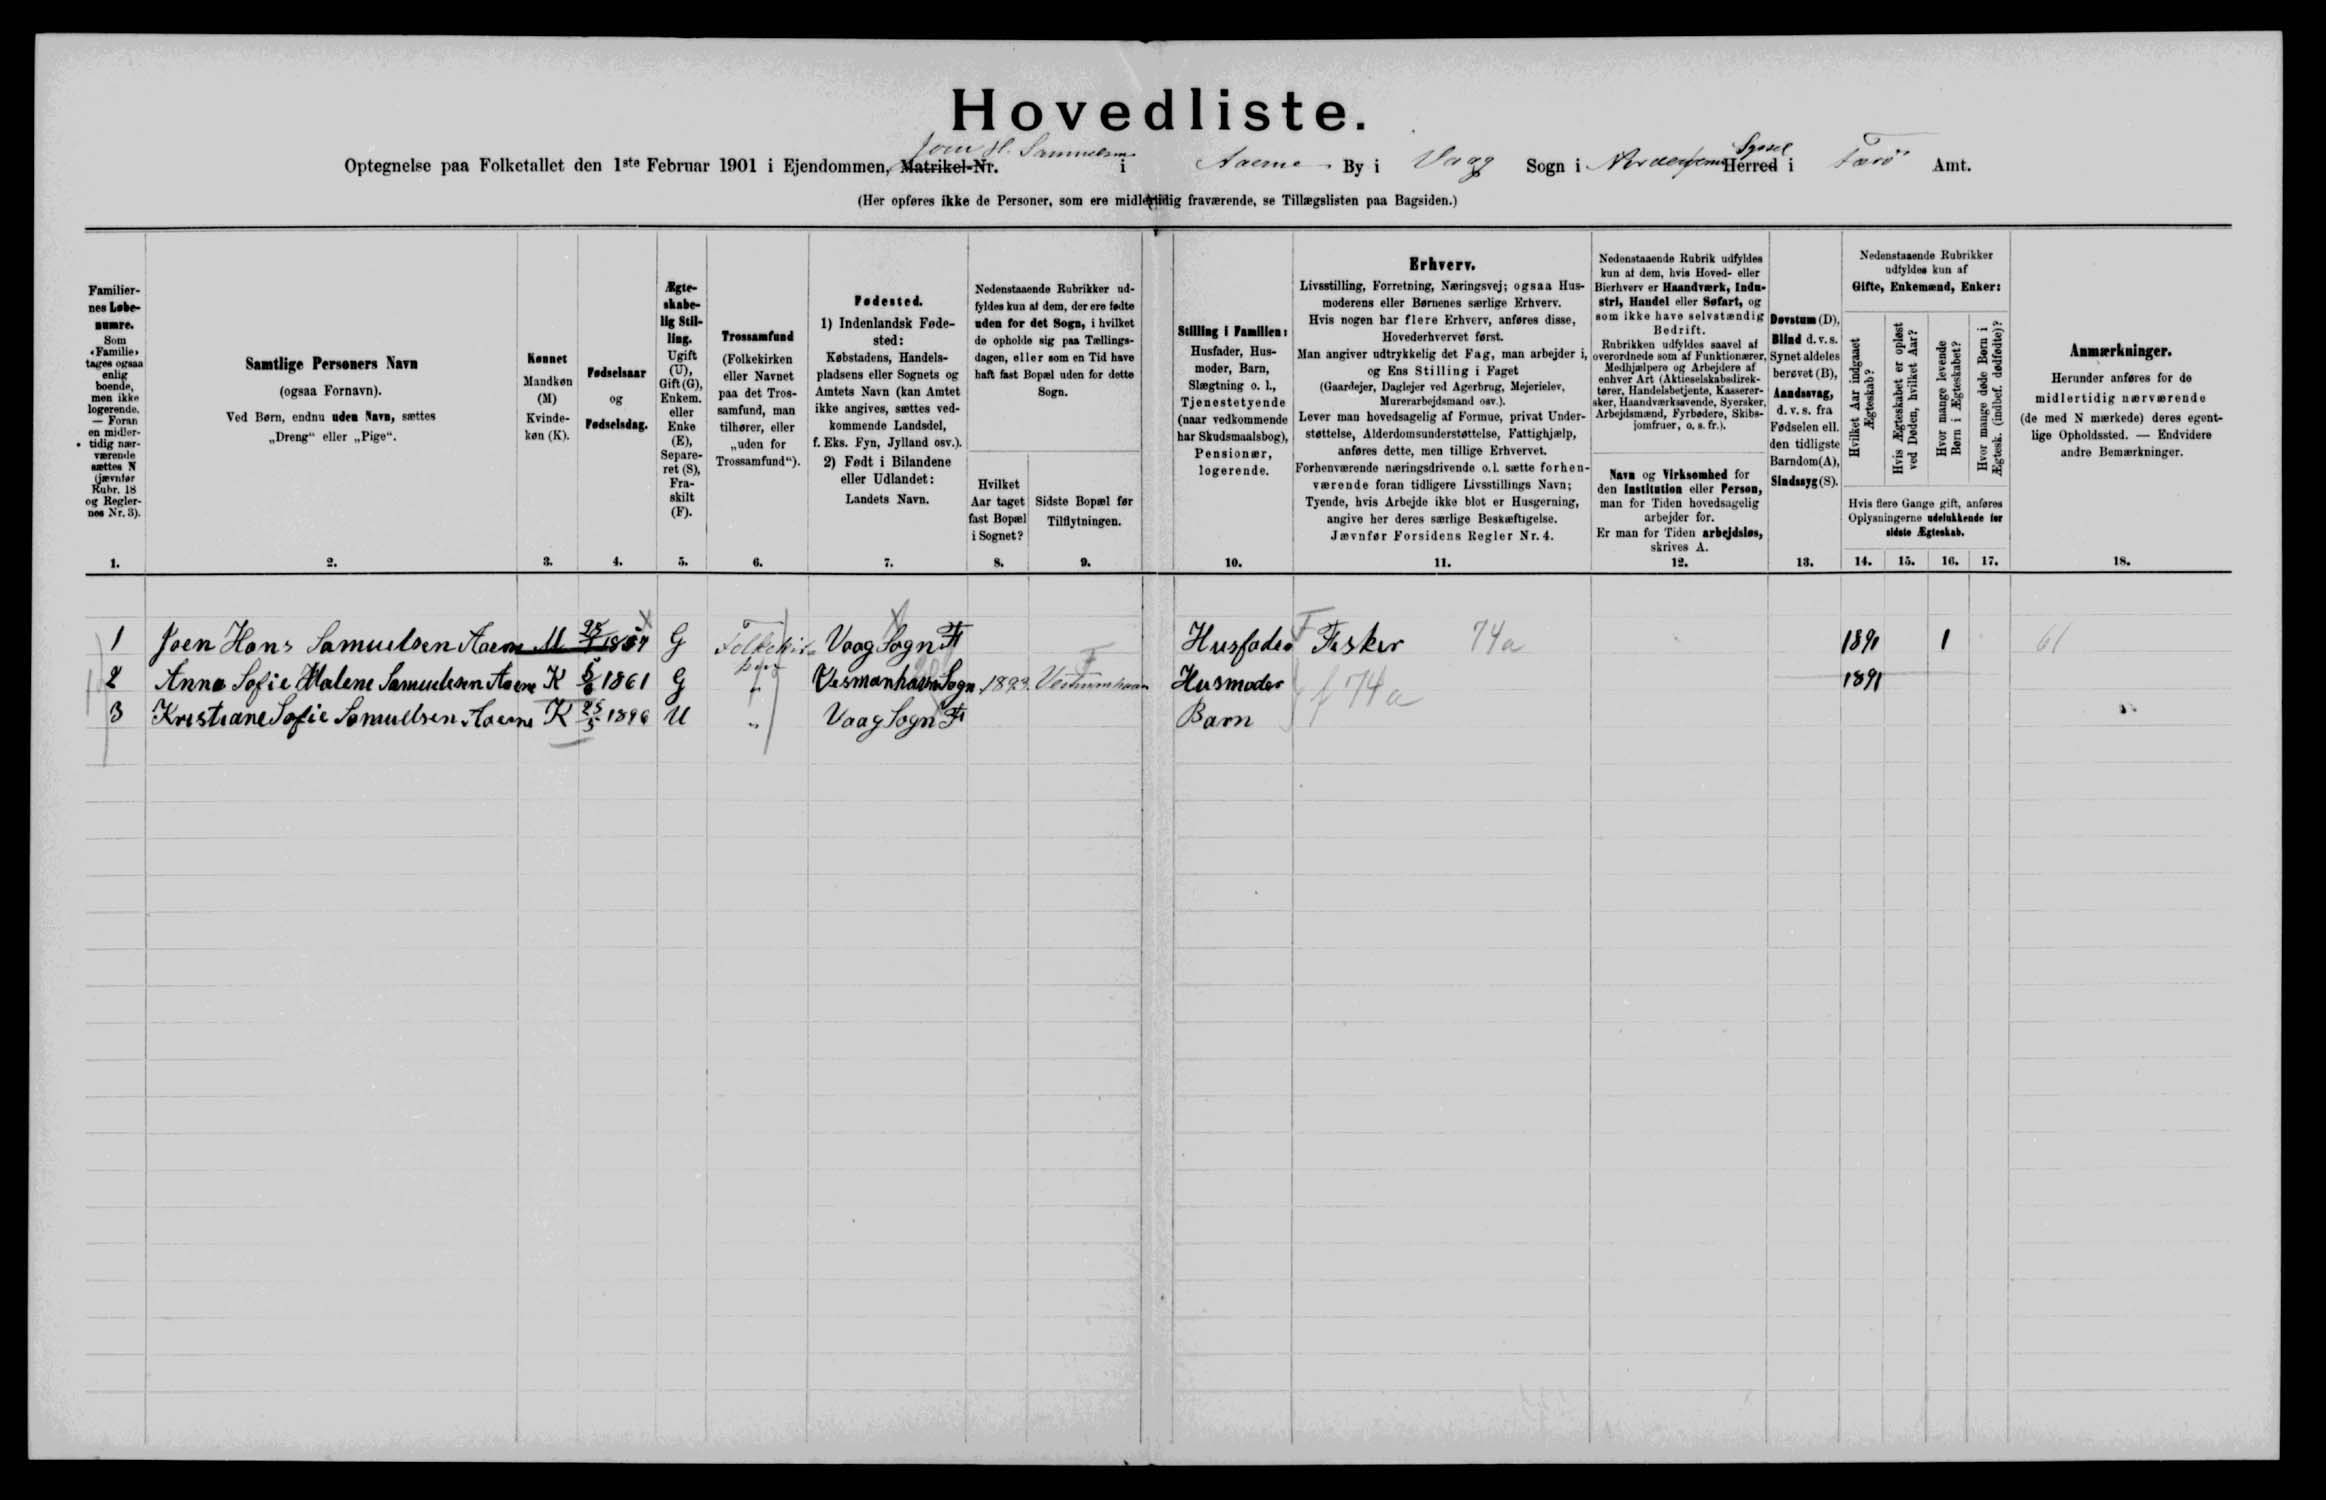 Hovedliste.
Optegnelse paa Folketallet den 1ste Februar 1901 i Ejendommen, Matrikel-Nr. Joen H. Samuelsen i Aaerne By i Vaag Sogn i Norderøernes Herred Syssel i Færö Amt.
(Her opføres ikke de Personer, som ere midlertidig fraværende, se Tillægslisten paa Bagsiden.)
Familiernes Løbenumre.
Som «Familie» tages ogsaa enlig boende, men ikke logerende. — Foran en midlertidig nærværende sættes N (jævnfør Rubr. 18 og Reglernes Nr. 3).
Samtlige Personers Navn
(ogsaa Fornavn).
Ved Børn, endnu uden Navn, sættes
„Dreng“ eller „Pige“.
Kønnet
Mandkøn (M)
Kvindekøn (K).
Fødselsaar
og
Fødselsdag.
Ægteskabelig Stilling.
Ugift (U), Gift (G), Enkem. eller Enke (E), Separeret (S), Fraskilt (F).
Trossamfund
(Folkekirken eller Navnet paa det Trossamfund, man tilhører, eller „uden for Trossamfund“).
Fødested.
1) Indenlandsk Fødested:
Købstadens, Handelspladsens eller Sognets og Amtets Navn (kan Amtet ikke angives, sættes vedkommende Landsdel, f. Eks. Fyn, Jylland osv.).
2) Født i Bilandene eller Udlandet:
Landets Navn.
Nedenstaaende Rubrikker udfyldes kun af dem, der ere fødte uden for det Sogn, i hvilket de opholde sig paa Tællingsdagen, eller som en Tid have haft fast Bopæl uden for dette Sogn.
Hvilket Aar taget fast Bopæl i Sognet?
Sidste Bopæl før Tilflytningen.
Stilling i Familien:
Husfader, Husmoder, Barn, Slægtning o. l., Tjenestetyende (naar vedkommende har Skudsmaalsbog), Pensionær, logerende.
Erhverv.
Livsstilling, Forretning, Næringsvej; ogsaa Husmoderens eller Børnenes særlige Erhverv.
Hvis nogen har flere Erhverv, anføres disse, Hovederhvervet først.
Man angiver udtrykkelig det Fag, man arbejder i, og Ens Stilling i Faget
(Gaardejer, Daglejer ved Agerbrug, Mejerielev, Murerarbejdsmand osv.).
Lever man hovedsagelig af Formue, privat Understøttelse, Alderdomsunderstøttelse, Fattighjælp, anføres dette, men tillige Erhvervet.
Forhenværende næringsdrivende o. l. sætte forhenværende foran tidligere Livsstillings Navn;
Tyende, hvis Arbejde ikke blot er Husgerning, angive her deres særlige Beskæftigelse.
Jævnfør Forsidens Regler Nr. 4.
Nedenstaaende Rubrik udfyldes kun af dem, hvis Hoved- eller Bierhverv er Haandværk, Industri, Handel eller Søfart, og som ikke have selvstændig Bedrift.
Rubrikken udfyldes saavel af overordnede som af Funktionærer, Medhjælpere og Arbejdere af enhver Art (Aktieselskabsdirektører, Handelsbetjente, Kasserersker, Haandværkssvende, Syersker, Arbejdsmænd, Fyrbødere, Skibsjomfruer, o. s. fr.).
Navn og Virksomhed for den Institution eller Person, man for Tiden hovedsagelig arbejder for.
Er man for Tiden arbejdsløs, skrives A.
Døvstum (D), Blind d. v. s. Synet aldeles berøvet (B), Aandssvag, d. v. s. fra Fødselen ell. den tidligste Barndom (A), Sindssyg (S).
Nedenstaaende Rubrikker udfyldes kun af
Gifte, Enkemænd, Enker:
Hvilket Aar indgaaet Ægteskab?
Hvis Ægteskabet er opløst ved Døden, hvilket Aar?
Hvor mange levende Børn i Ægteskabet?
Hvor mange døde Børn i Ægtesk. (indbef. dødfødte)?
Hvis flere Gange gift, anføres Oplysningerne udelukkende for sidste Ægteskab.
Anmærkninger.
Herunder anføres for de midlertidig nærværende (de med N mærkede) deres egentlige Opholdssted. — Endvidere andre Bemærkninger.
1. 2. 3. 4. 5. 6. 7. 8. 9. 10. 11. 12. 13. 14. 15. 16. 17. 18.
1 Joen Hans Samuelsen Aaerne M G Folkekirken Vaag Sogn F Husfader F Fisker 74a 1891 1 61
2 Anna Sofie Malene Samuelsen Aaerne K 1861 G " Vesmanhavn Sogn 1893 Vestmanhavn F Husmoder f 74a 1891
3 Kristiane Sofie Samuelsen Aaerne K 25/5 1896 U " Vaag Sogn F Barn